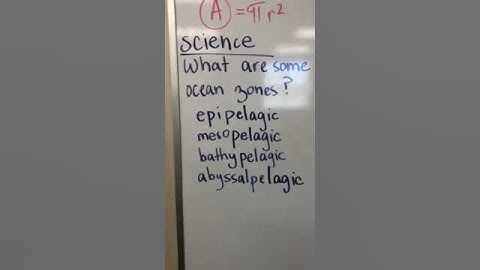 A = πr²
science
What are some
ocean zones?
epipelagic
mesopelagic
bathypelagic
abyssalpelagic